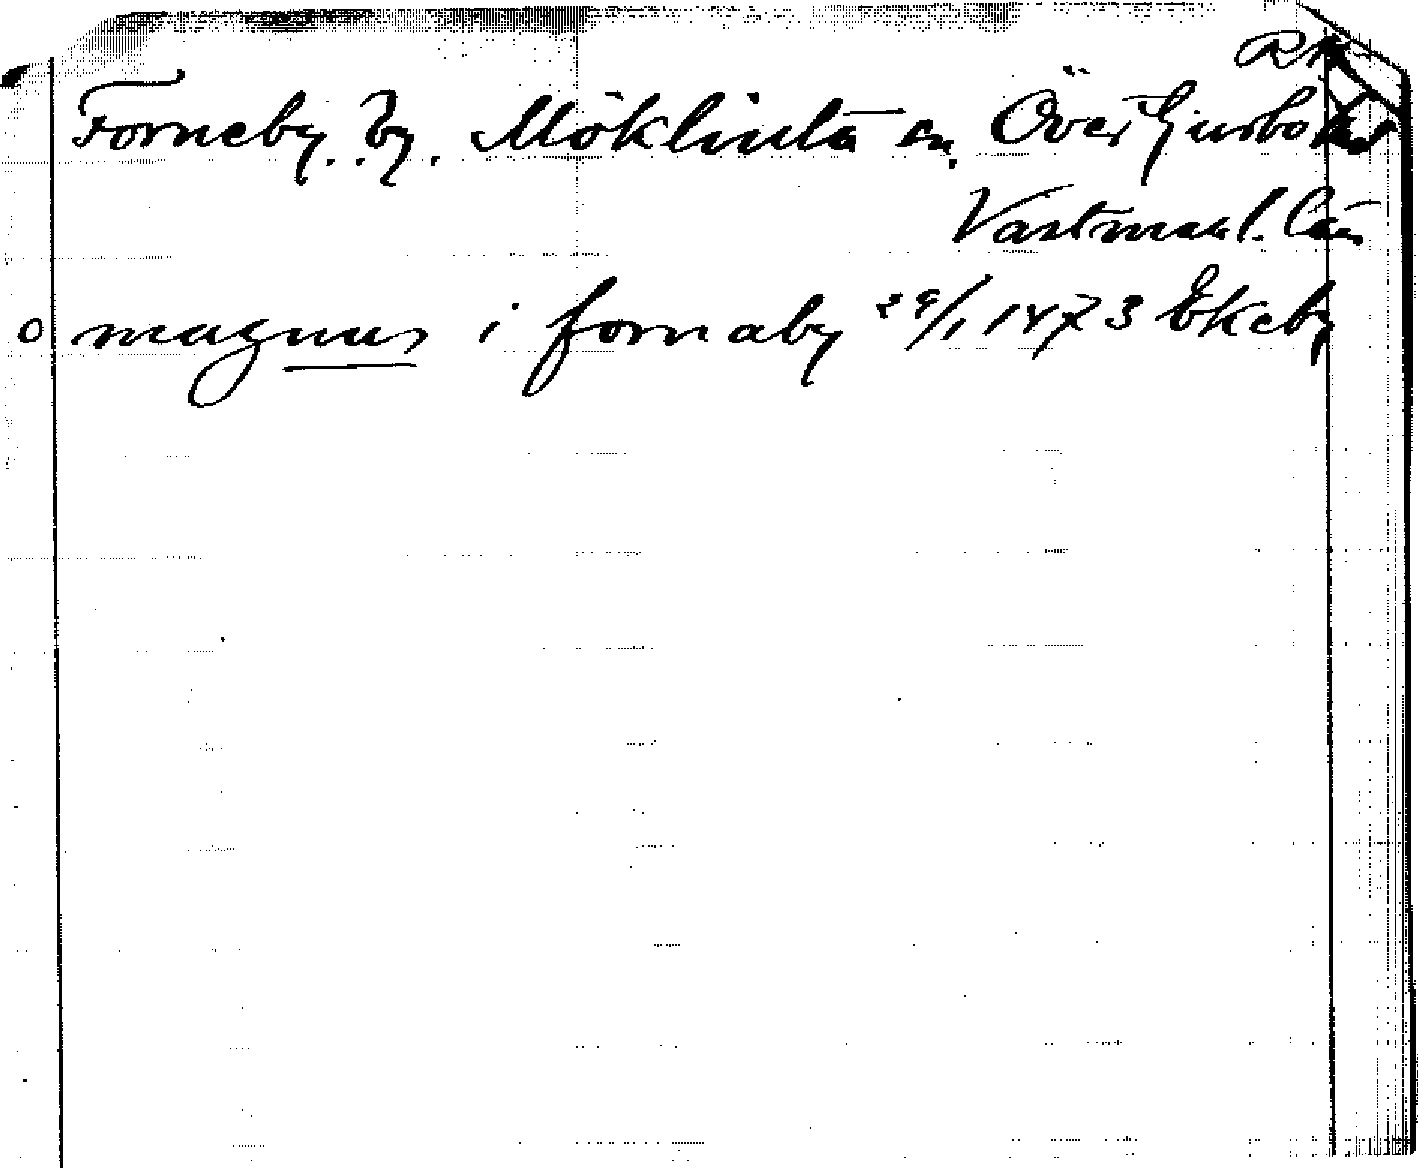 Forneby. by. Möklinta sn. Övertjurbo hd
Västmanl. län
o magnus i fornaby 29/1 1473 Ekeby